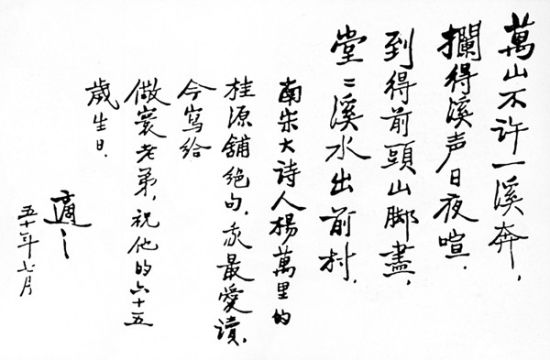 萬山不许一溪奔，
攔得溪声日夜喧．
到得前頭山脚盡，
堂〻溪水出前村．
南宋大诗人楊萬里的
桂源舖绝句，我最愛讀．
今寫给
儆寰老弟，祝他的六十五
歲生日．
適之
五十年七月